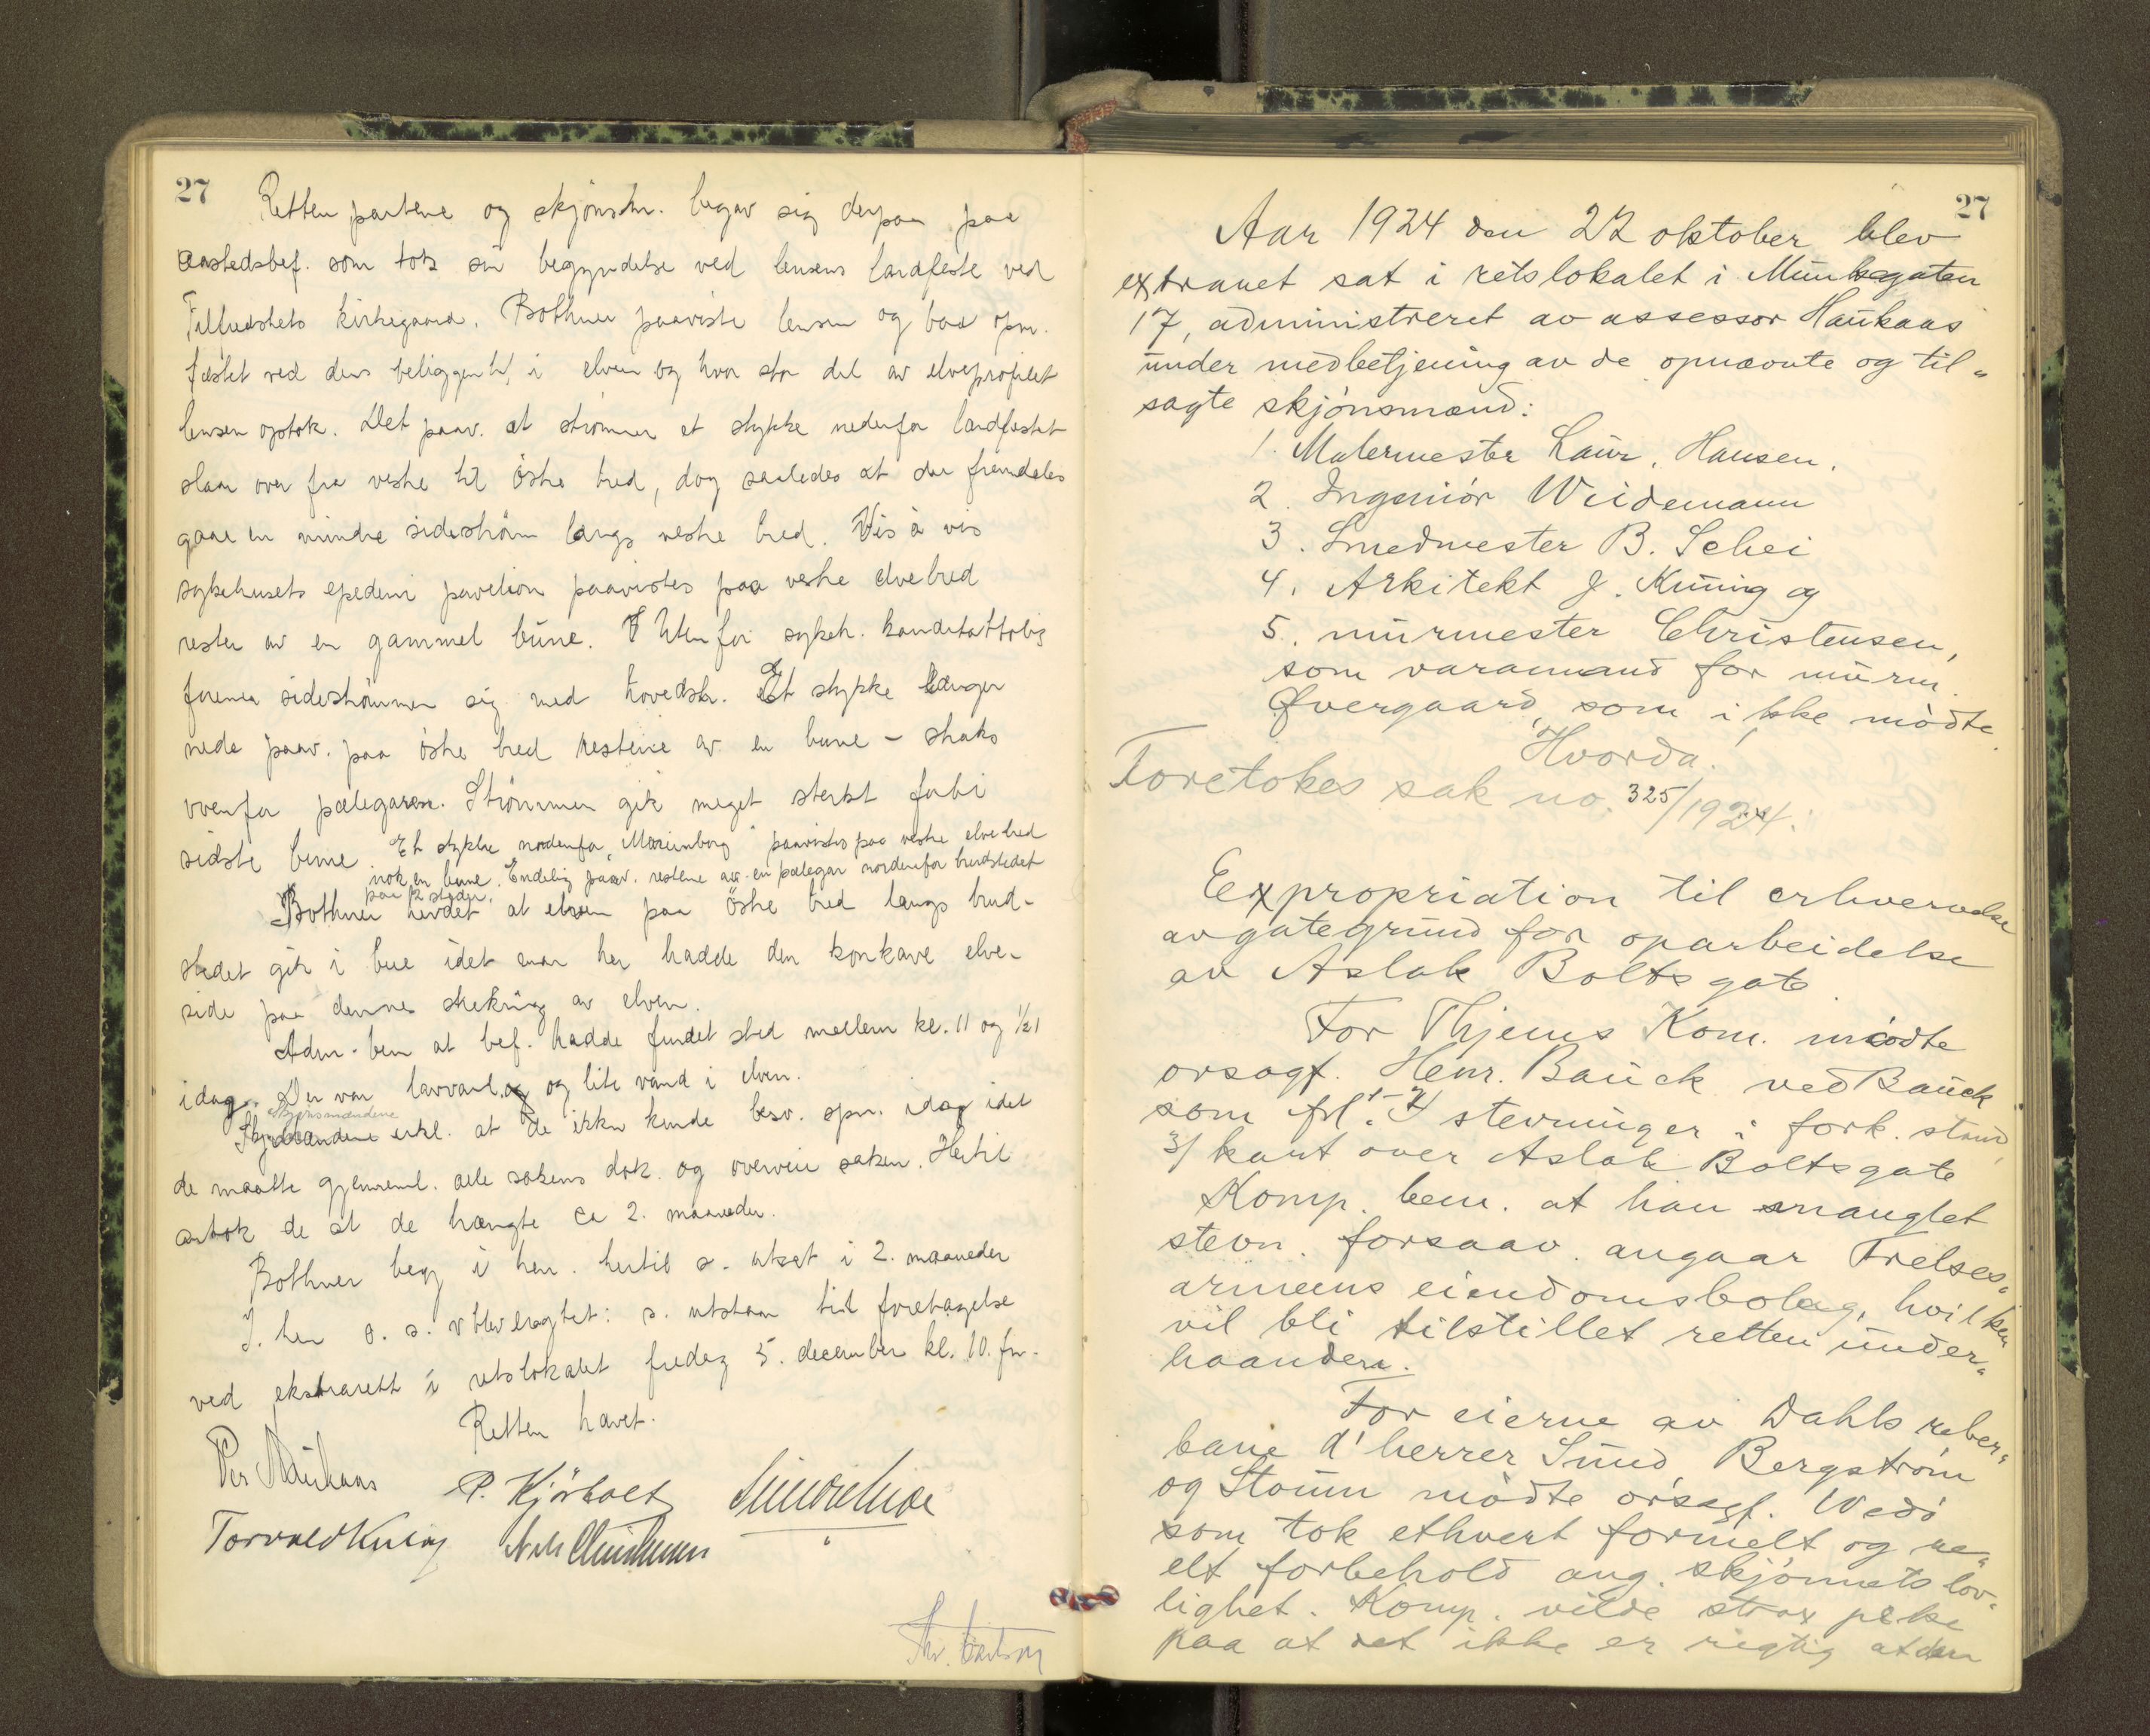 27
Retten partene og skjönsm. begav sig derpaa paa
aastedsbef. som tok sin begyndelse ved lensens landfeste ved
Tilfredshets kirkegaard. Bothner paaviste lensen og bad opm.
fæstet ved dens beliggenh. i elven og hvor stor del av elveprofilet
lensen optok. Det paav. at strömmen et stykke nedenfor landfestet
slaar over fra vestre til östre bred, dog saaledes at der fremdeles
gaar en mindre sideström langs vestre bred. Vis à vis
sykehusets epedemi pavelion paavistes paa vestre elvebred
rester av en gammel bune. Utenfor sykeh.
forener sideströmmen sig med hovedstr. Et stykke længer
nede paav. paa östre bred restene av en bune - straks
ovenfor pælegaren. Strömmen gik meget sterkt forbi
sidste bune. Et stykke nordenfor "Marienborg" paavistes paa vestre elvebred
nok en bune. Endelig paav. restene av en pælegar nordenfor brudstedet
paa 2 steder.
Bothner hevdet at elven paa östre bred langs brud-
stedet gik i bue idet man her hadde den konkave elve-
side paa denne strekning av elven.
Adm. bem at bef. hadde fundet sted mellem kl. 11 og ½1
idag. Der var lavvand og lite vand i elven.
Skjönsmændene
erkl. at de ikke kunde besv. spm. idag idet
de maatte gjennemg. alle sakens dok. og overveie saken. Hertil
antok de at de trængte ca 2. maaneder.
Bothner beg i hen. hertil s. utsat i 2. maaneder
I. hen o. s. v blev bragtet: s. utstaar til foretagelse
ved ekstrarett i retslokalet fredag 5. december kl. 10. fm.
Retten hævet.
Per Haukaas P. Kjörholt
Torvald Kuing
27
Aar 1924 den 22 oktober blev
extraret sat i retslokalet i Munkegaten
17, administreret av assessor Haukaas
under medbetjening av de opnævnte og til-
sagte skjönsmænd:
1. Malermester Laur. Hansen.
2. Ingeniör Weidemann
3. Smedmester B. Schei
4. Arkitekt J. Kuning og
5. murmester Christensen,
som varamand for murm.
Øvergaard, som ikke mödte.
Hvorda!
Foretokes sak no. 325/1924.
Expropriation til erhvervelse
av gategrund for oparbeidelse
av Aslak Bolts gate
For Thjems Kom. mödte
orsagf. Henr. Bauck ved Bauck
som frl. 1-7 stevninger i fork. stand,
3/ kart over Aslak Boltsgate
Komp. bem. at han manglet
stevn. forsaav. angaar Frelses-
armeens eiendomsbolag, hvilken
vil bli tilstillet retten under-
haanden.
For eierne av Dahls reber-
bane d'herrer Sund, Bergström
og Staum mödte orsagf. Wedö
som tok ethvert formelt og re-
elt forbehold ang. skjönnets lov-
lighet. Komp. vilde strax peke
paa at det ikke er rigtig at den